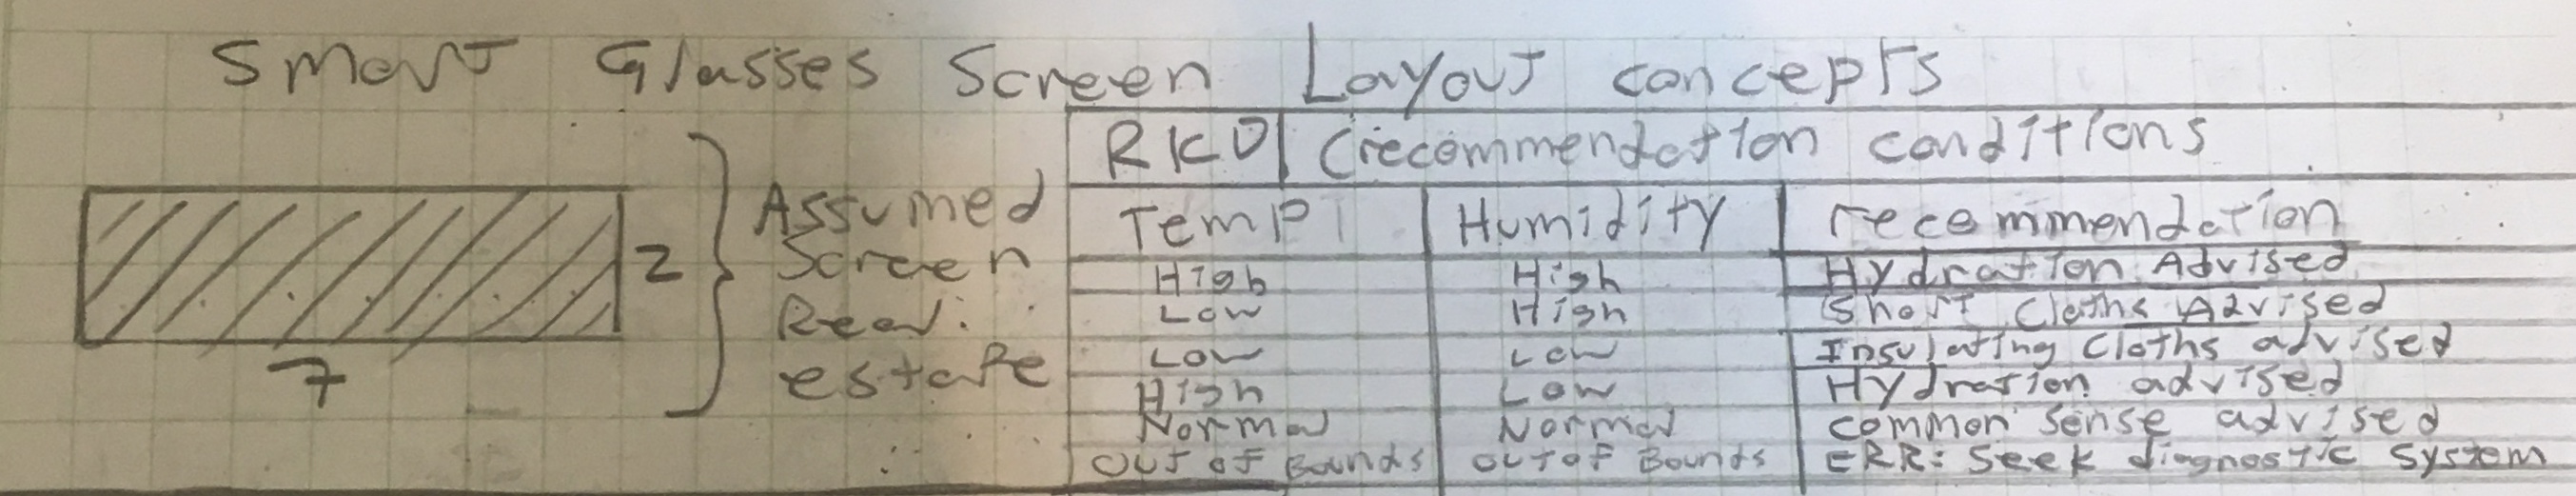 Smart Glasses Screen Layout concepts
RKO (recommendation conditions
2
7
Assumed
Screen
Real
estate
Temp Humidity recommendation
High High Hydration Advised
Low High Short Cloths Advised
Low Low Insulating Cloths advised
High Low Hydration advised
Normal Normal common sense advised
Out of Bounds out of Bounds ERR: Seek diagnostic System